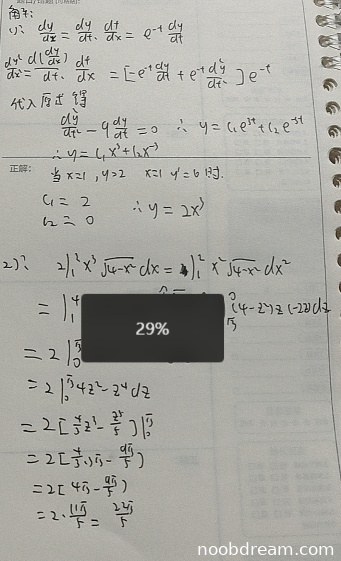 解:
(1) dy/dx = dy/dt · dt/dx = e^-t dy/dt
dy²/dx² = d(dy/dx)/dt · dt/dx = [-e^-t dy/dt + e^-t d²y/dt²] e^-t
代入原式 得
d²y/dt² - 9 dy/dt = 0 ∴ y = c₁e^3t + c₂e^-3t
∴ y = c₁x³ + c₂x^-3
正解:
当 x=1, y=2 x=1 y'=6 时
c₁ = 2
c₂ = 0 ∴ y = 2x³
2) 2∫₁² x³ √(4-x²) dx = ∫₁² x² √(4-x²) dx²
= ∫₁⁴ (4-z²) z (-2z) dz
29%
= 2∫₀^√3
= 2∫₀^√3 4z² - z⁴ dz
= 2[4/3 z³ - z⁵/5]|₀^√3
= 2[4/3 · 3√3 - 9√3/5)
= 2[4√3 - 9√3/5)
= 2 · 11√3/5 = 22√3/5
noobdream.com